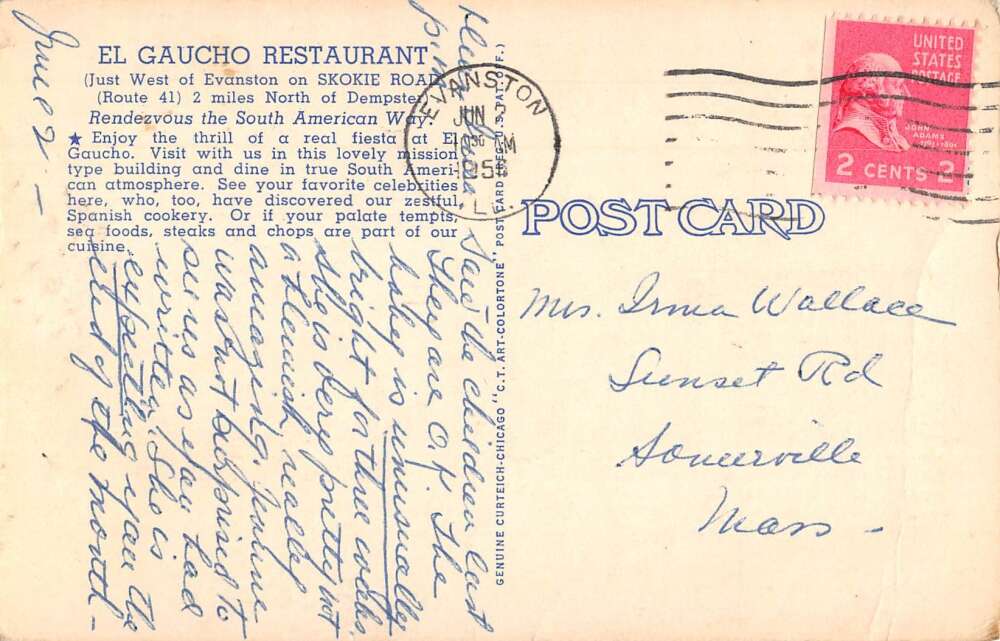 June 2 —
EL GAUCHO RESTAURANT
(Just West of Evanston on SKOKIE ROAD
(Route 41) 2 miles North of Dempster)
Rendezvous the South American Way!
★ Enjoy the thrill of a real fiesta at El
Gaucho. Visit with us in this lovely mission
type building and dine in true South Ameri-
can atmosphere. See your favorite celebrities
here, who, too, have discovered our zestful,
Spanish cookery. Or if your palate tempts,
sea foods, steaks and chops are part of our
cuisine.
Dear Irma
Saw the children last
p.m. They are O.K. The
baby is unusually
bright for three weeks.
She is very pretty not
a blemish, really
amazing. Jeanne
wasn't surprised to
see us as you had
written. She is
expecting you the
end of the month —
GENUINE CURTEICH-CHICAGO "C.T. ART-COLORTONE" POST CARD (REG. U.S. PAT. OFF.)
EVANSTON
JUN 2
10 30 AM
195
ILL.
UNITED
STATES
POSTAGE
JOHN
ADAMS
2 CENTS 2
POST CARD
Mrs. Irma Wallace
Sunset Rd
Somerville
Mass —